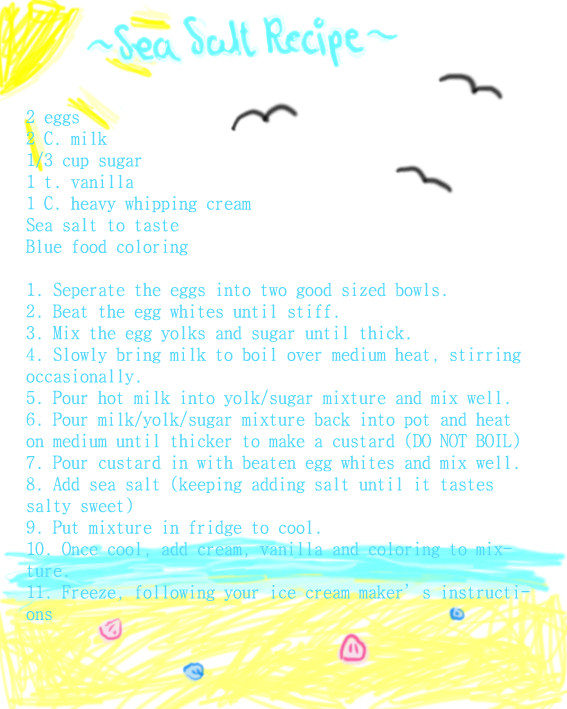 ~Sea Salt Recipe~
2 eggs
2 C. milk
1/3 cup sugar
1 t. vanilla
1 C. heavy whipping cream
Sea salt to taste
Blue food coloring
1. Seperate the eggs into two good sized bowls.
2. Beat the egg whites until stiff.
3. Mix the egg yolks and sugar until thick.
4. Slowly bring milk to boil over medium heat, stirring
occasionally.
5. Pour hot milk into yolk/sugar mixture and mix well.
6. Pour milk/yolk/sugar mixture back into pot and heat
on medium until thicker to make a custard (DO NOT BOIL)
7. Pour custard in with beaten egg whites and mix well.
8. Add sea salt (keeping adding salt until it tastes
salty sweet)
9. Put mixture in fridge to cool.
10. Once cool, add cream, vanilla and coloring to mix-
ture.
11. Freeze, following your ice cream maker's instructi-
ons